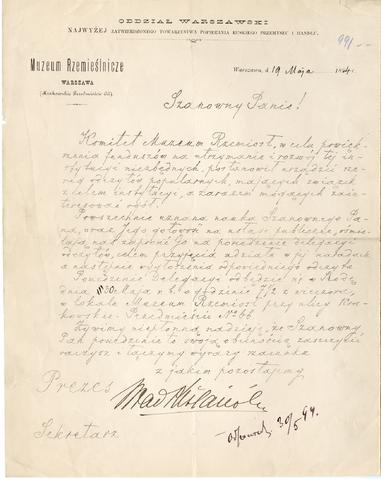 ODDZIAŁ WARSZAWSKI
NAJWYŻEJ ZATWIERDZONEGO TOWARZYSTWA POPIERANIA RUSKIEGO PRZEMYSŁU I HANDLU.
991
Muzeum Rzemieślnicze
WARSZAWA
(Krakowskie Przedmieście 66)
Warszawa, d. 19 Maja 1894 r.
Szanowny Panie!
Komitet Muzeum Rzemiosł, w celu powięk-
szenia funduszów na utrzymanie i rozwój tej in-
stytucyi niezbędnych, postanowił urządzić sze-
reg odczytów popularnych, mających związek
z celem instytucyi, a zarazem mogących zain-
teresować ogół.
Powszechnie uznana nauka Szanownego Pa-
na, oraz Jego gotowość na usługi publiczne, ośmie-
lają nas zaprosić Go na posiedzenie delegacyi
odczytów, celem przyjęcia udziału w jej naradach
a następnie wygłoszenia odpowiedniego odczytu
Posiedzenie Delegacyi odbędzie się w Środę
dnia 30 Maja r. b. o godzinie 7 1/2 z wieczora
w lokalu Muzeum Rzemiosł przy ulicy Kra-
kowskie-Przedmieście No 66
Żywimy niepłonną nadzieję, że Szanowny
Pan posiedzenie to swoją obecnością zaszczycić
raczysz i łączymy wyrazy szacunku
z jakim pozostajemy
Prezes
Sekretarz
30/5 94.